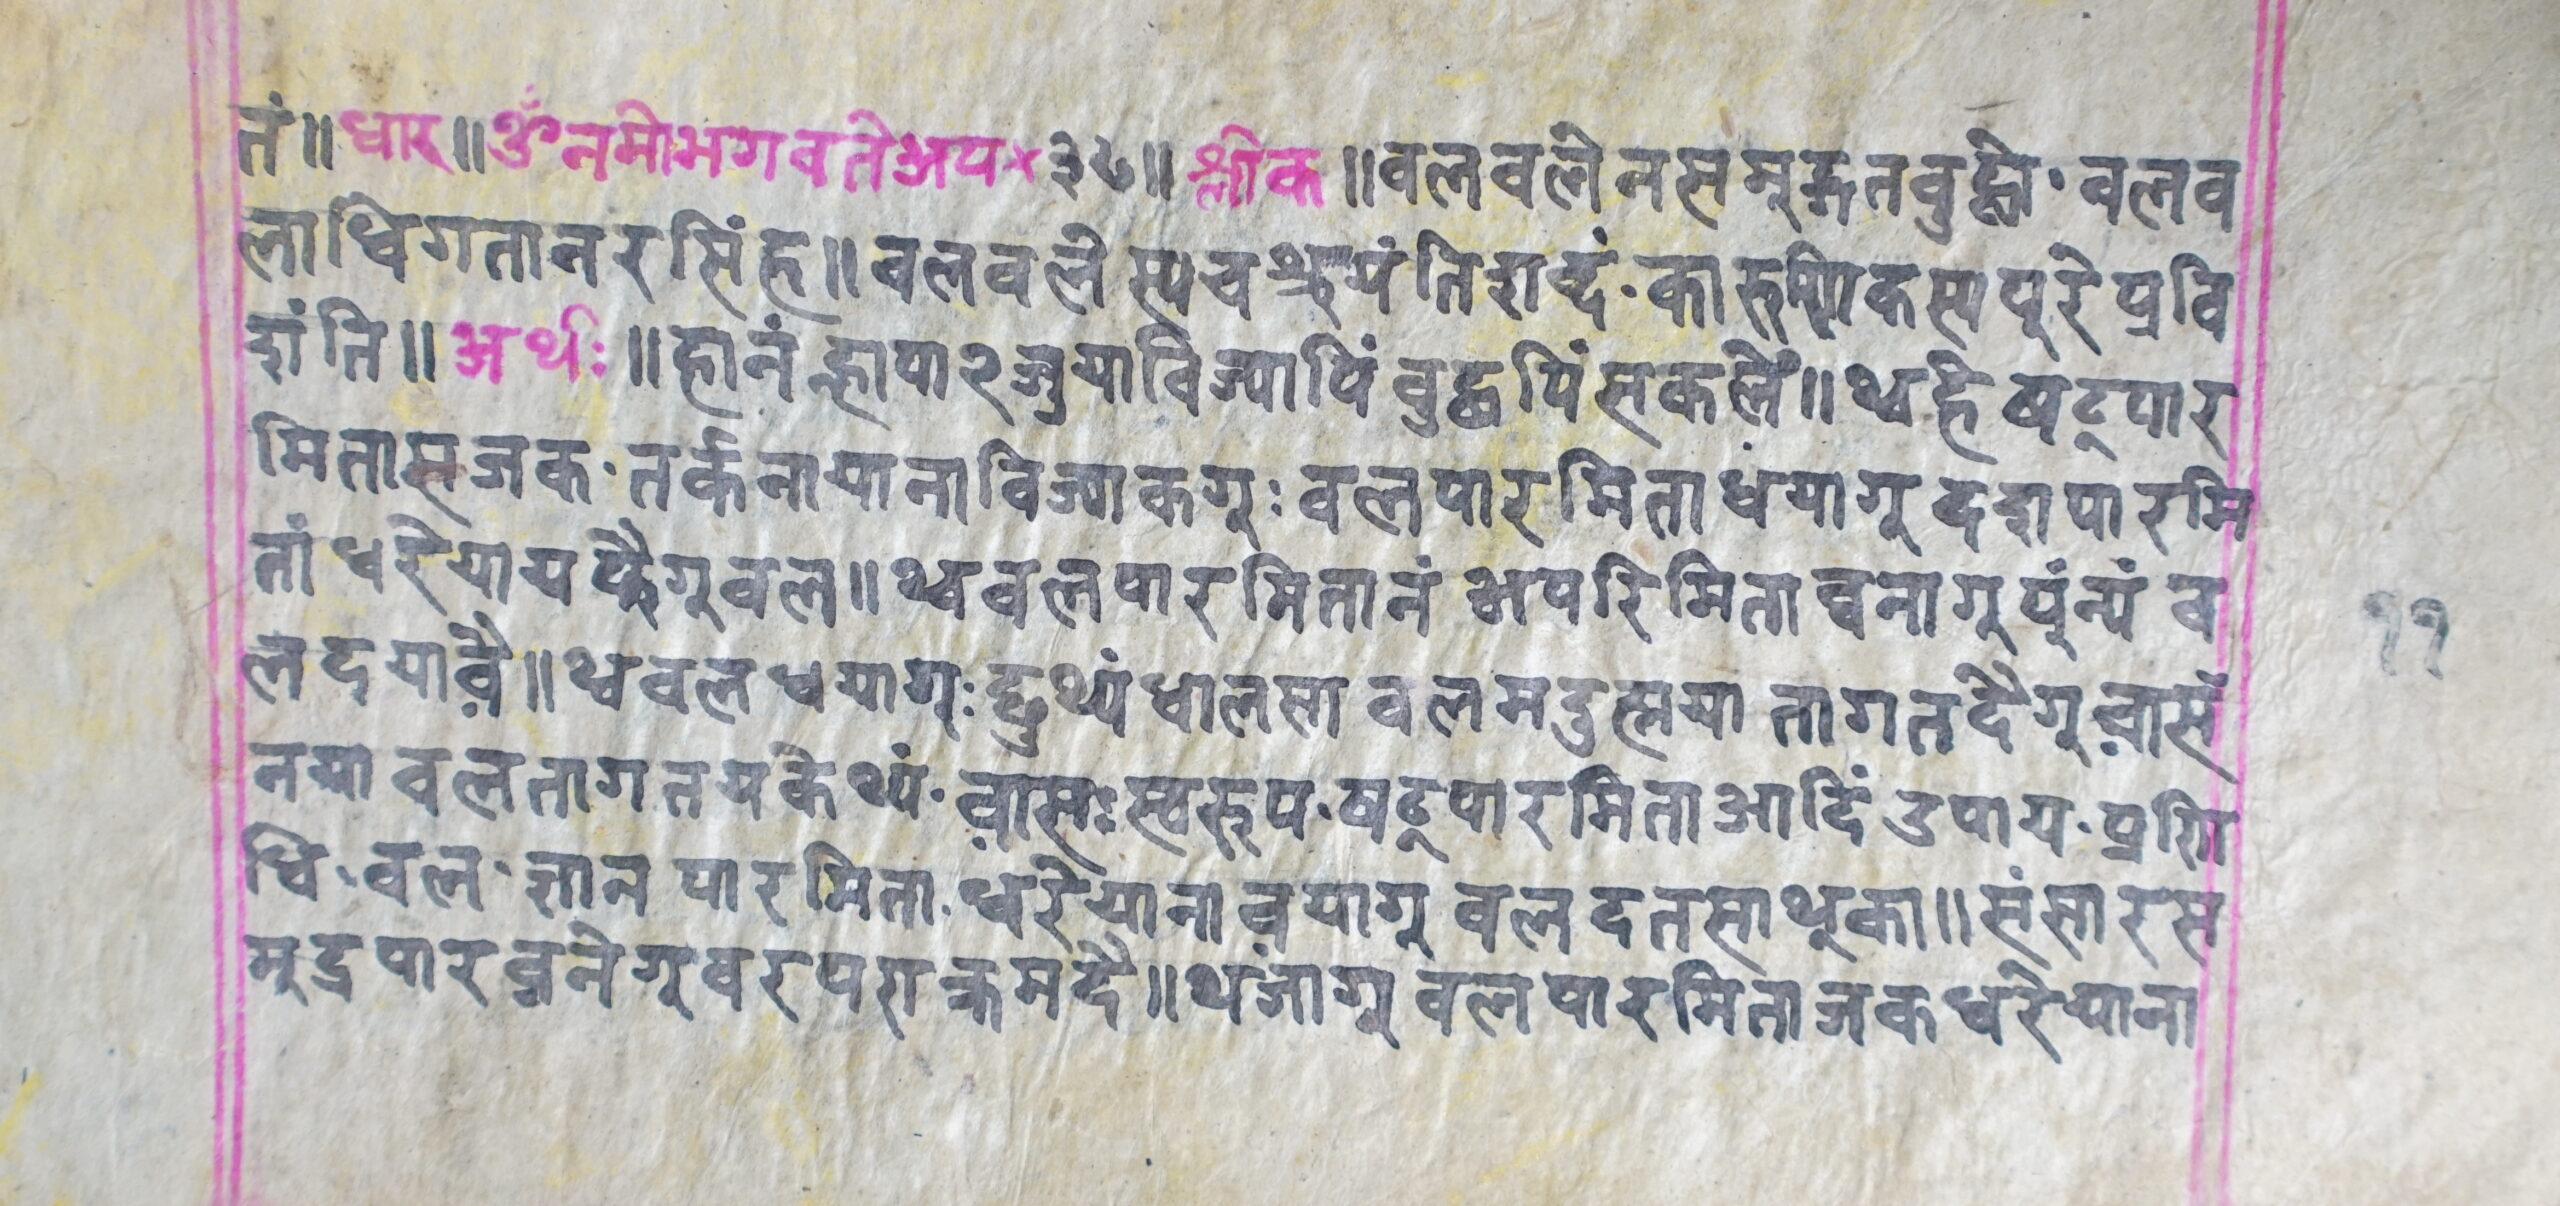 तं॥ धार॥ ॐ नमो भगवते अप× ३६॥ श्लोक॥ वलवलेन समुद्गत वुद्धो· वलव
लाधिगता नरसिंह॥ वलवलेस्य च श्रुयंति शब्दं· कारुणिकस्य पूरे प्रवि
शंति॥ अर्थः॥ हानं ह्नापा२जुया विज्यापिं वुद्धपिं सकलें॥ थ्व हे षट्पार
मितास जक· तर्कनायाना विज्याकगूः वलपारमिताधयागू दशपारमि
तां धरेयाय फैगु वल॥ थ्व वलपारमितानं अपरिमिता व्वनागू पूंन्यं व
ल दयावै॥ थ्व वल धयागूः छुथ्यं धालसा वल मदुह्मया तागत दैगू वासं
नया वल तागत यके थ्यं· वासः स्वरूप· षट्पारमिता आदिं उपाय· प्रणि
धि· वल· ज्ञान पारमिता· धरेयाना वयागू वल दतसा थूका॥ संसार स
मूद्र पार व्वनेगू वर पराक्रम दै॥ थंजागू वलपारमिता जक धरेयाना
११